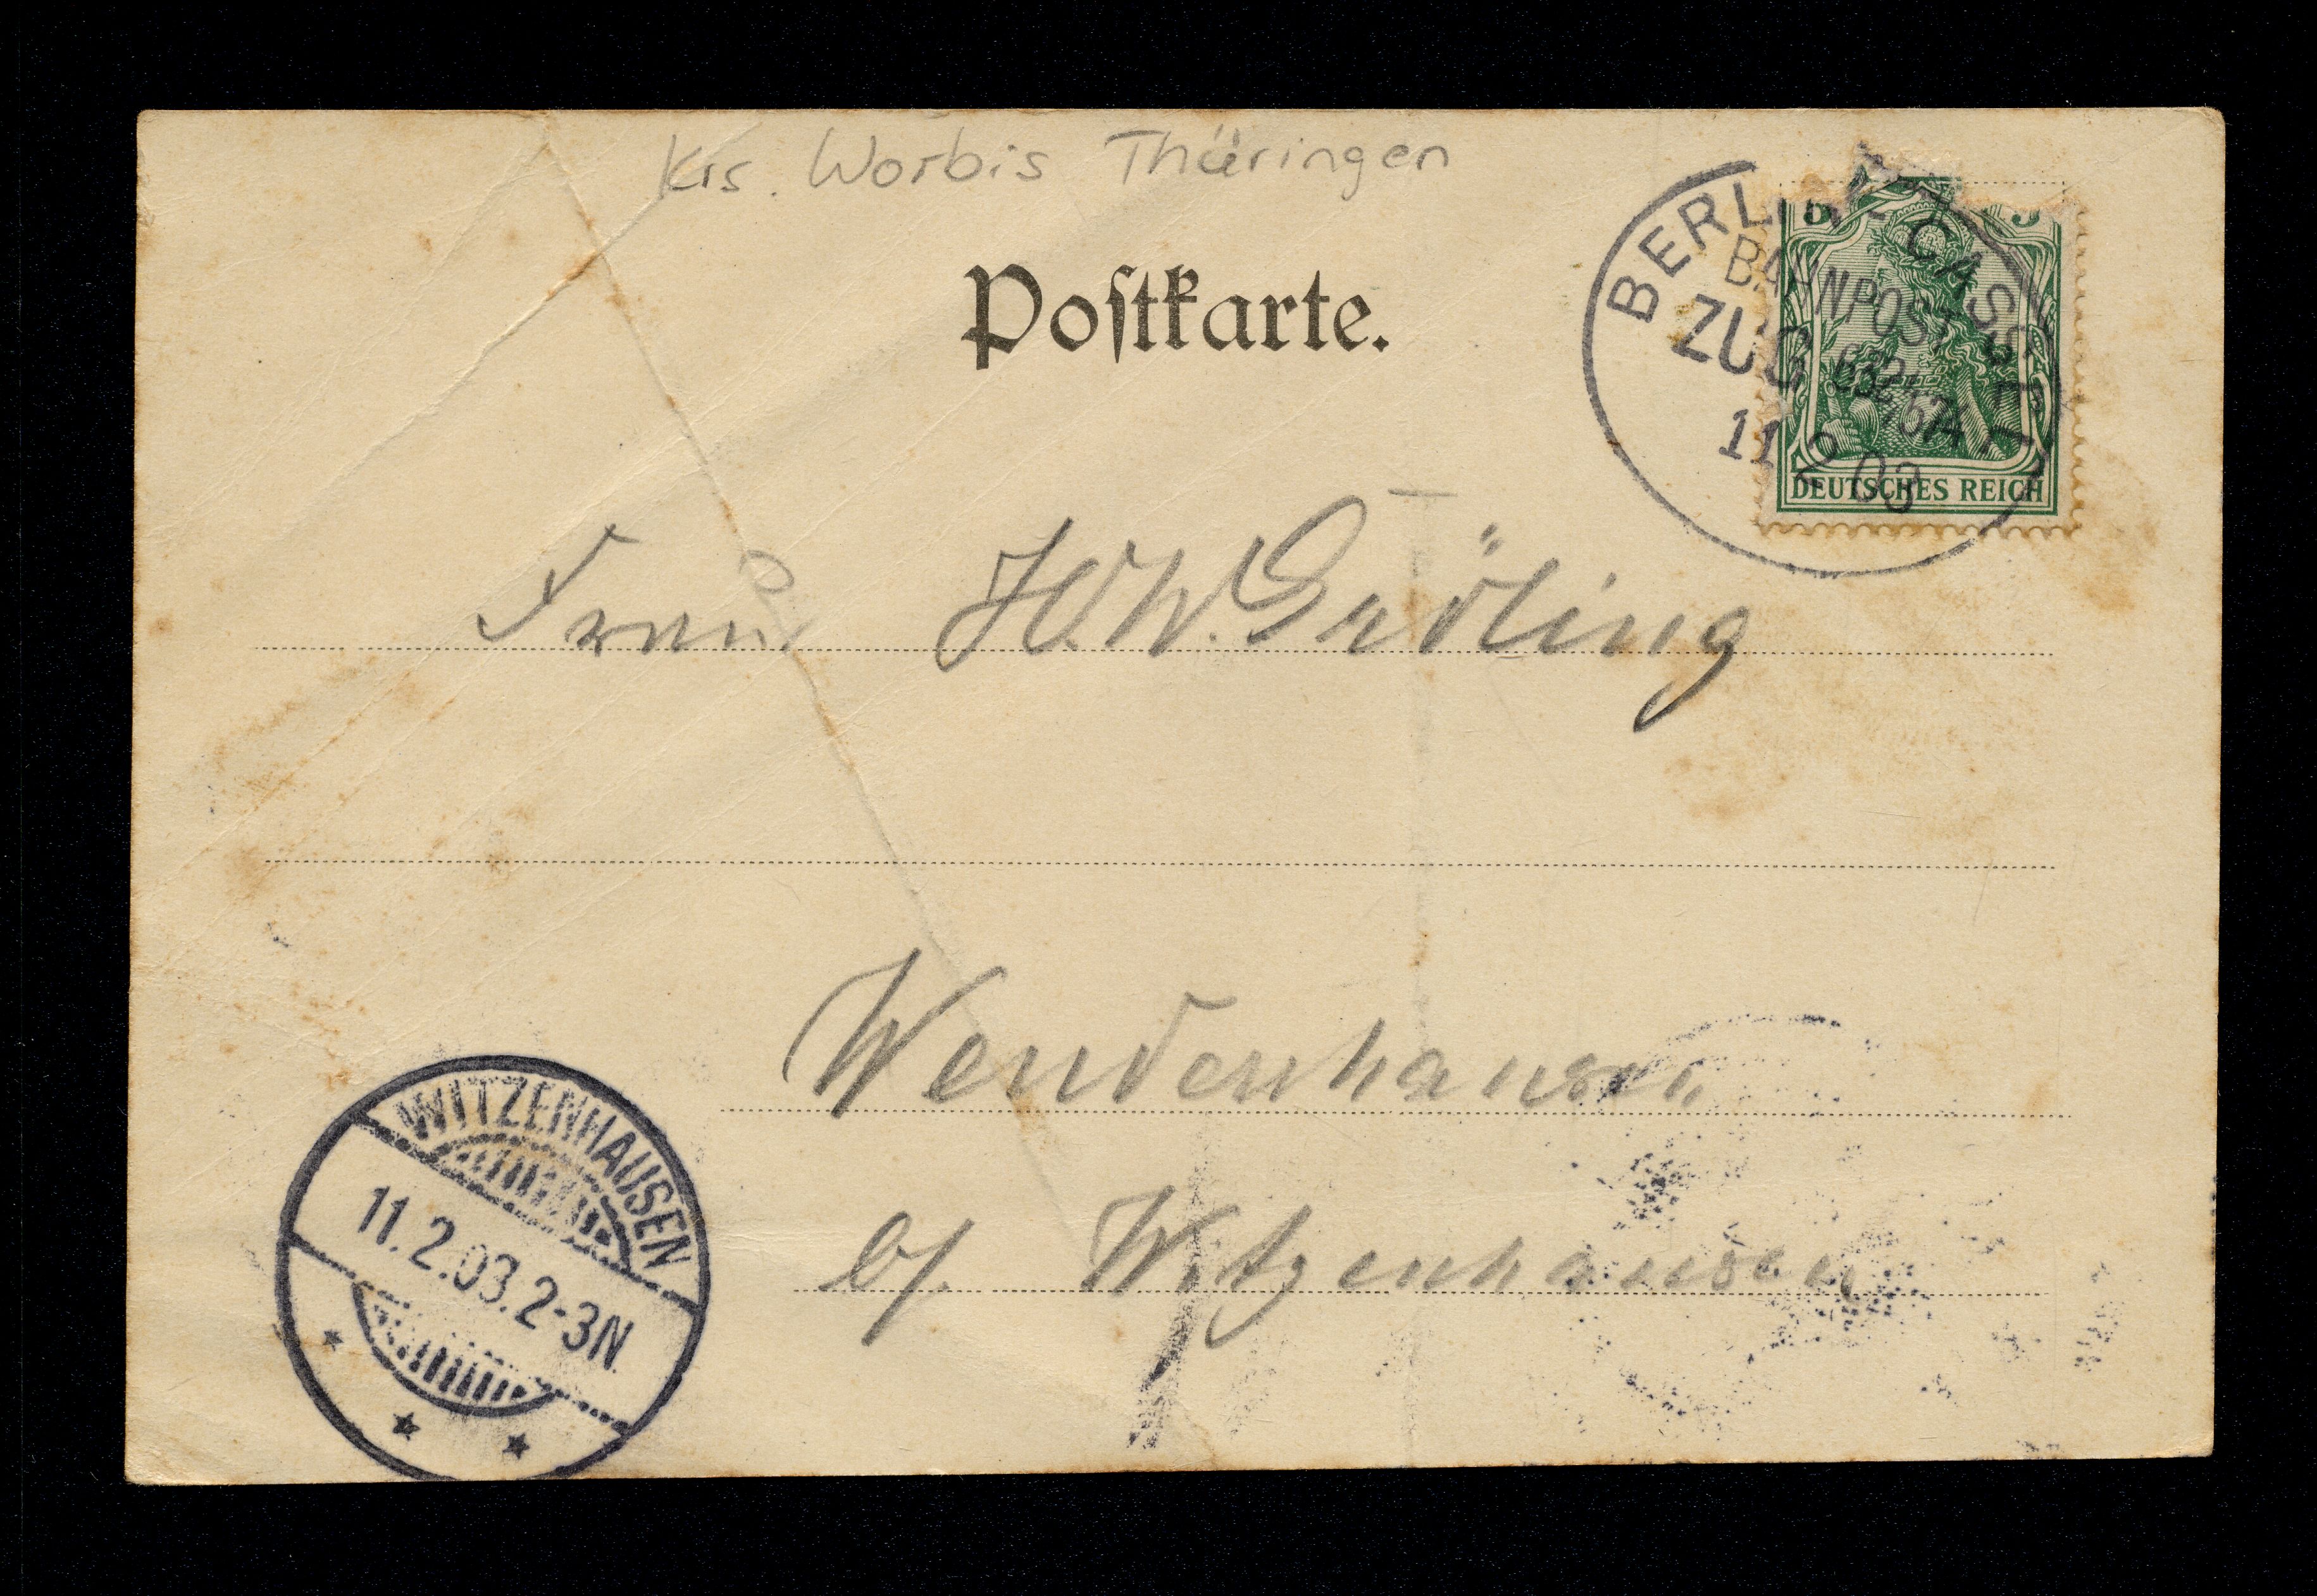 Krs. Worbis Thüringen
Postkarte.
BERLIN CASSEL
BAHNPOST
ZUG
11 2 03
5 5
DEUTSCHES REICH
Frau H. W. Gröling
Wendenhausen
b/. Witzenhausen
WITZENHAUSEN
11.2.03.2-3N.